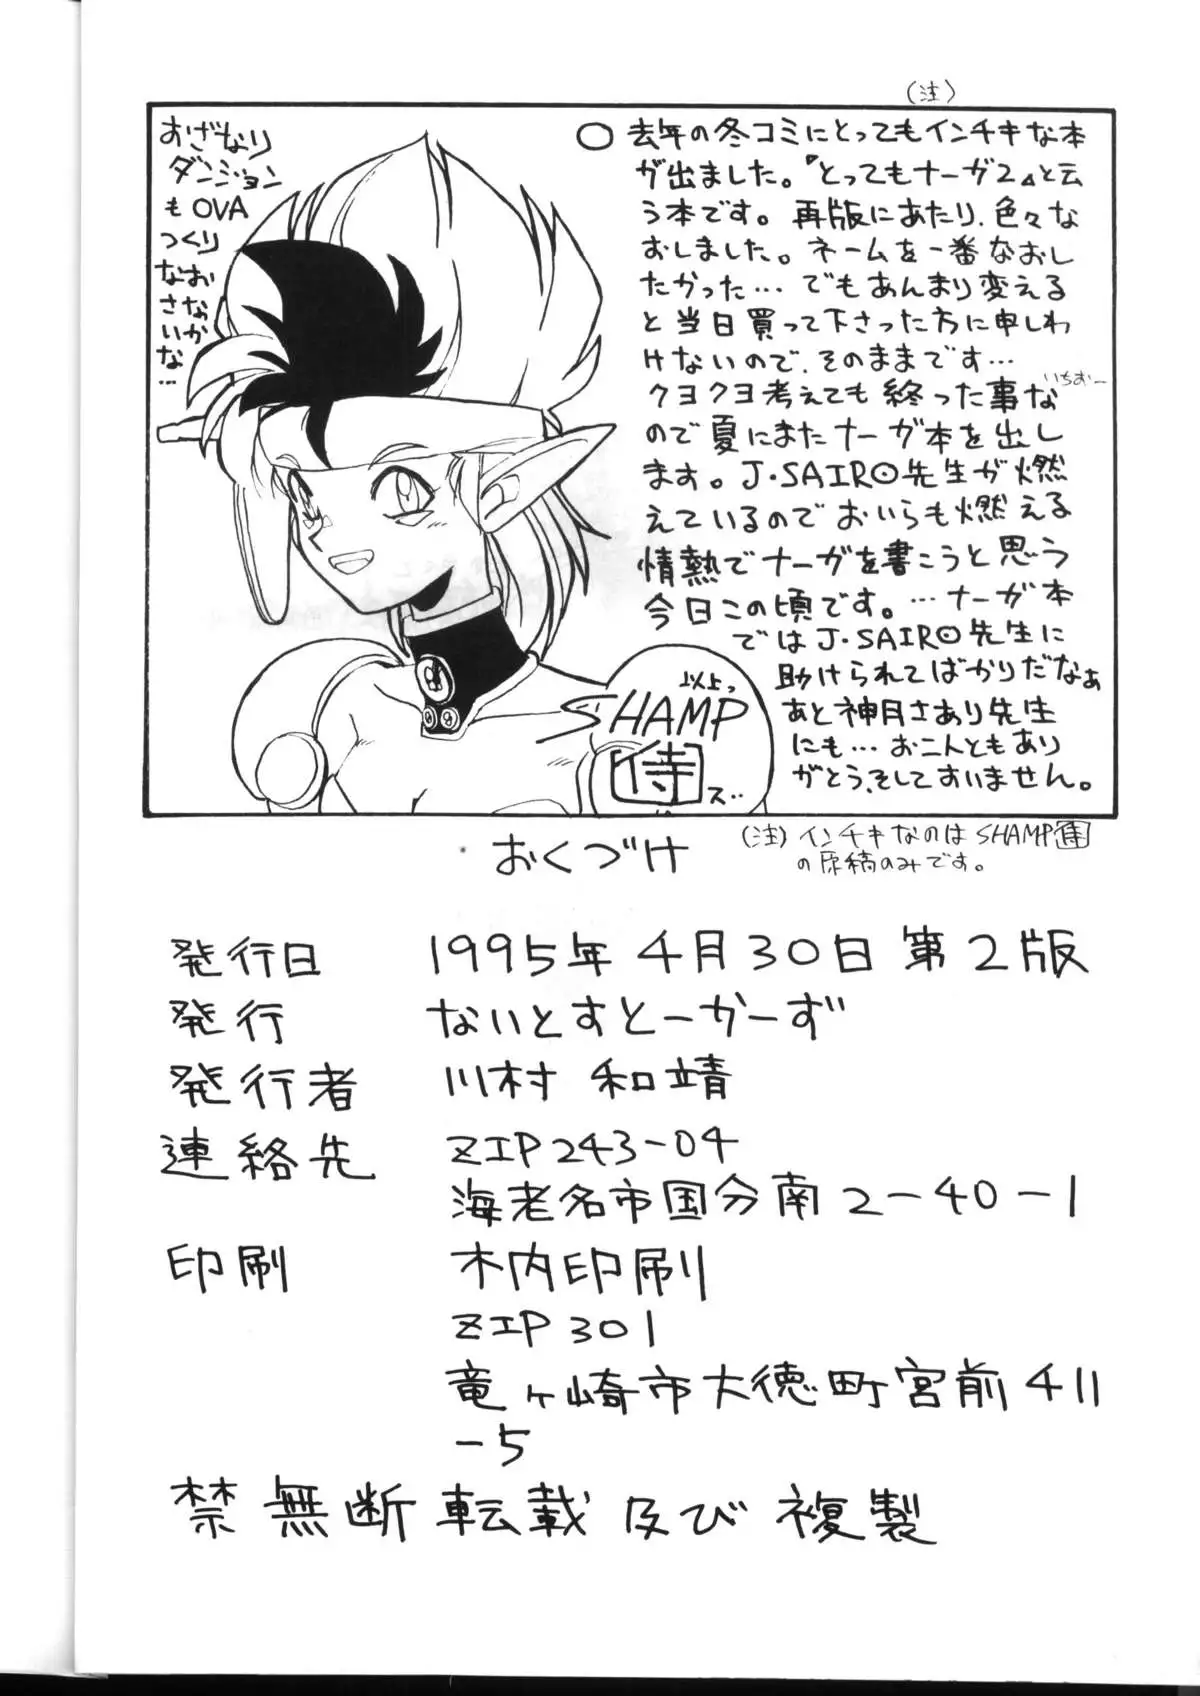 (注)
おざなり
ダンジョン
もOVA
つくり
なおさなな
さいか
いな…
○ 去年の冬コミにとってもインチキな本
が出ました。『とってもナーガ2』と云
う本です。再版にあたり、色々な
おしました。ネームを一番なおし
たかった…でもあんまり変える
と当日買って下さった方に申しわ
けないので、そのままです…
いちおー
クヨクヨ考えても終った事な
ので夏にまたナーガ本を出し
ます。J・SAIRO先生が燃
えているのでおいらも燃える
情熱でナーガを書こうと思う
今日この頃です。…ナーガ本
ではJ・SAIRO先生に
助けられてばかりだなぁ
あと神月さあり先生
にも…お二人ともあり
がとう、そしてすいません。
以上っ
SHAMP
侍
ズ‥
おくづけ
(注)インチキなのはSHAMP侍
の原稿のみです。
発行日 1995年4月30日第2版
発行 ないとすとーかーず
発行者 川村 和靖
連絡先 ZIP243-04
海老名市国分南2-40-1
印刷 木内印刷
ZIP301
竜ヶ崎市大徳町宮前411
-5
禁無断転載及び複製